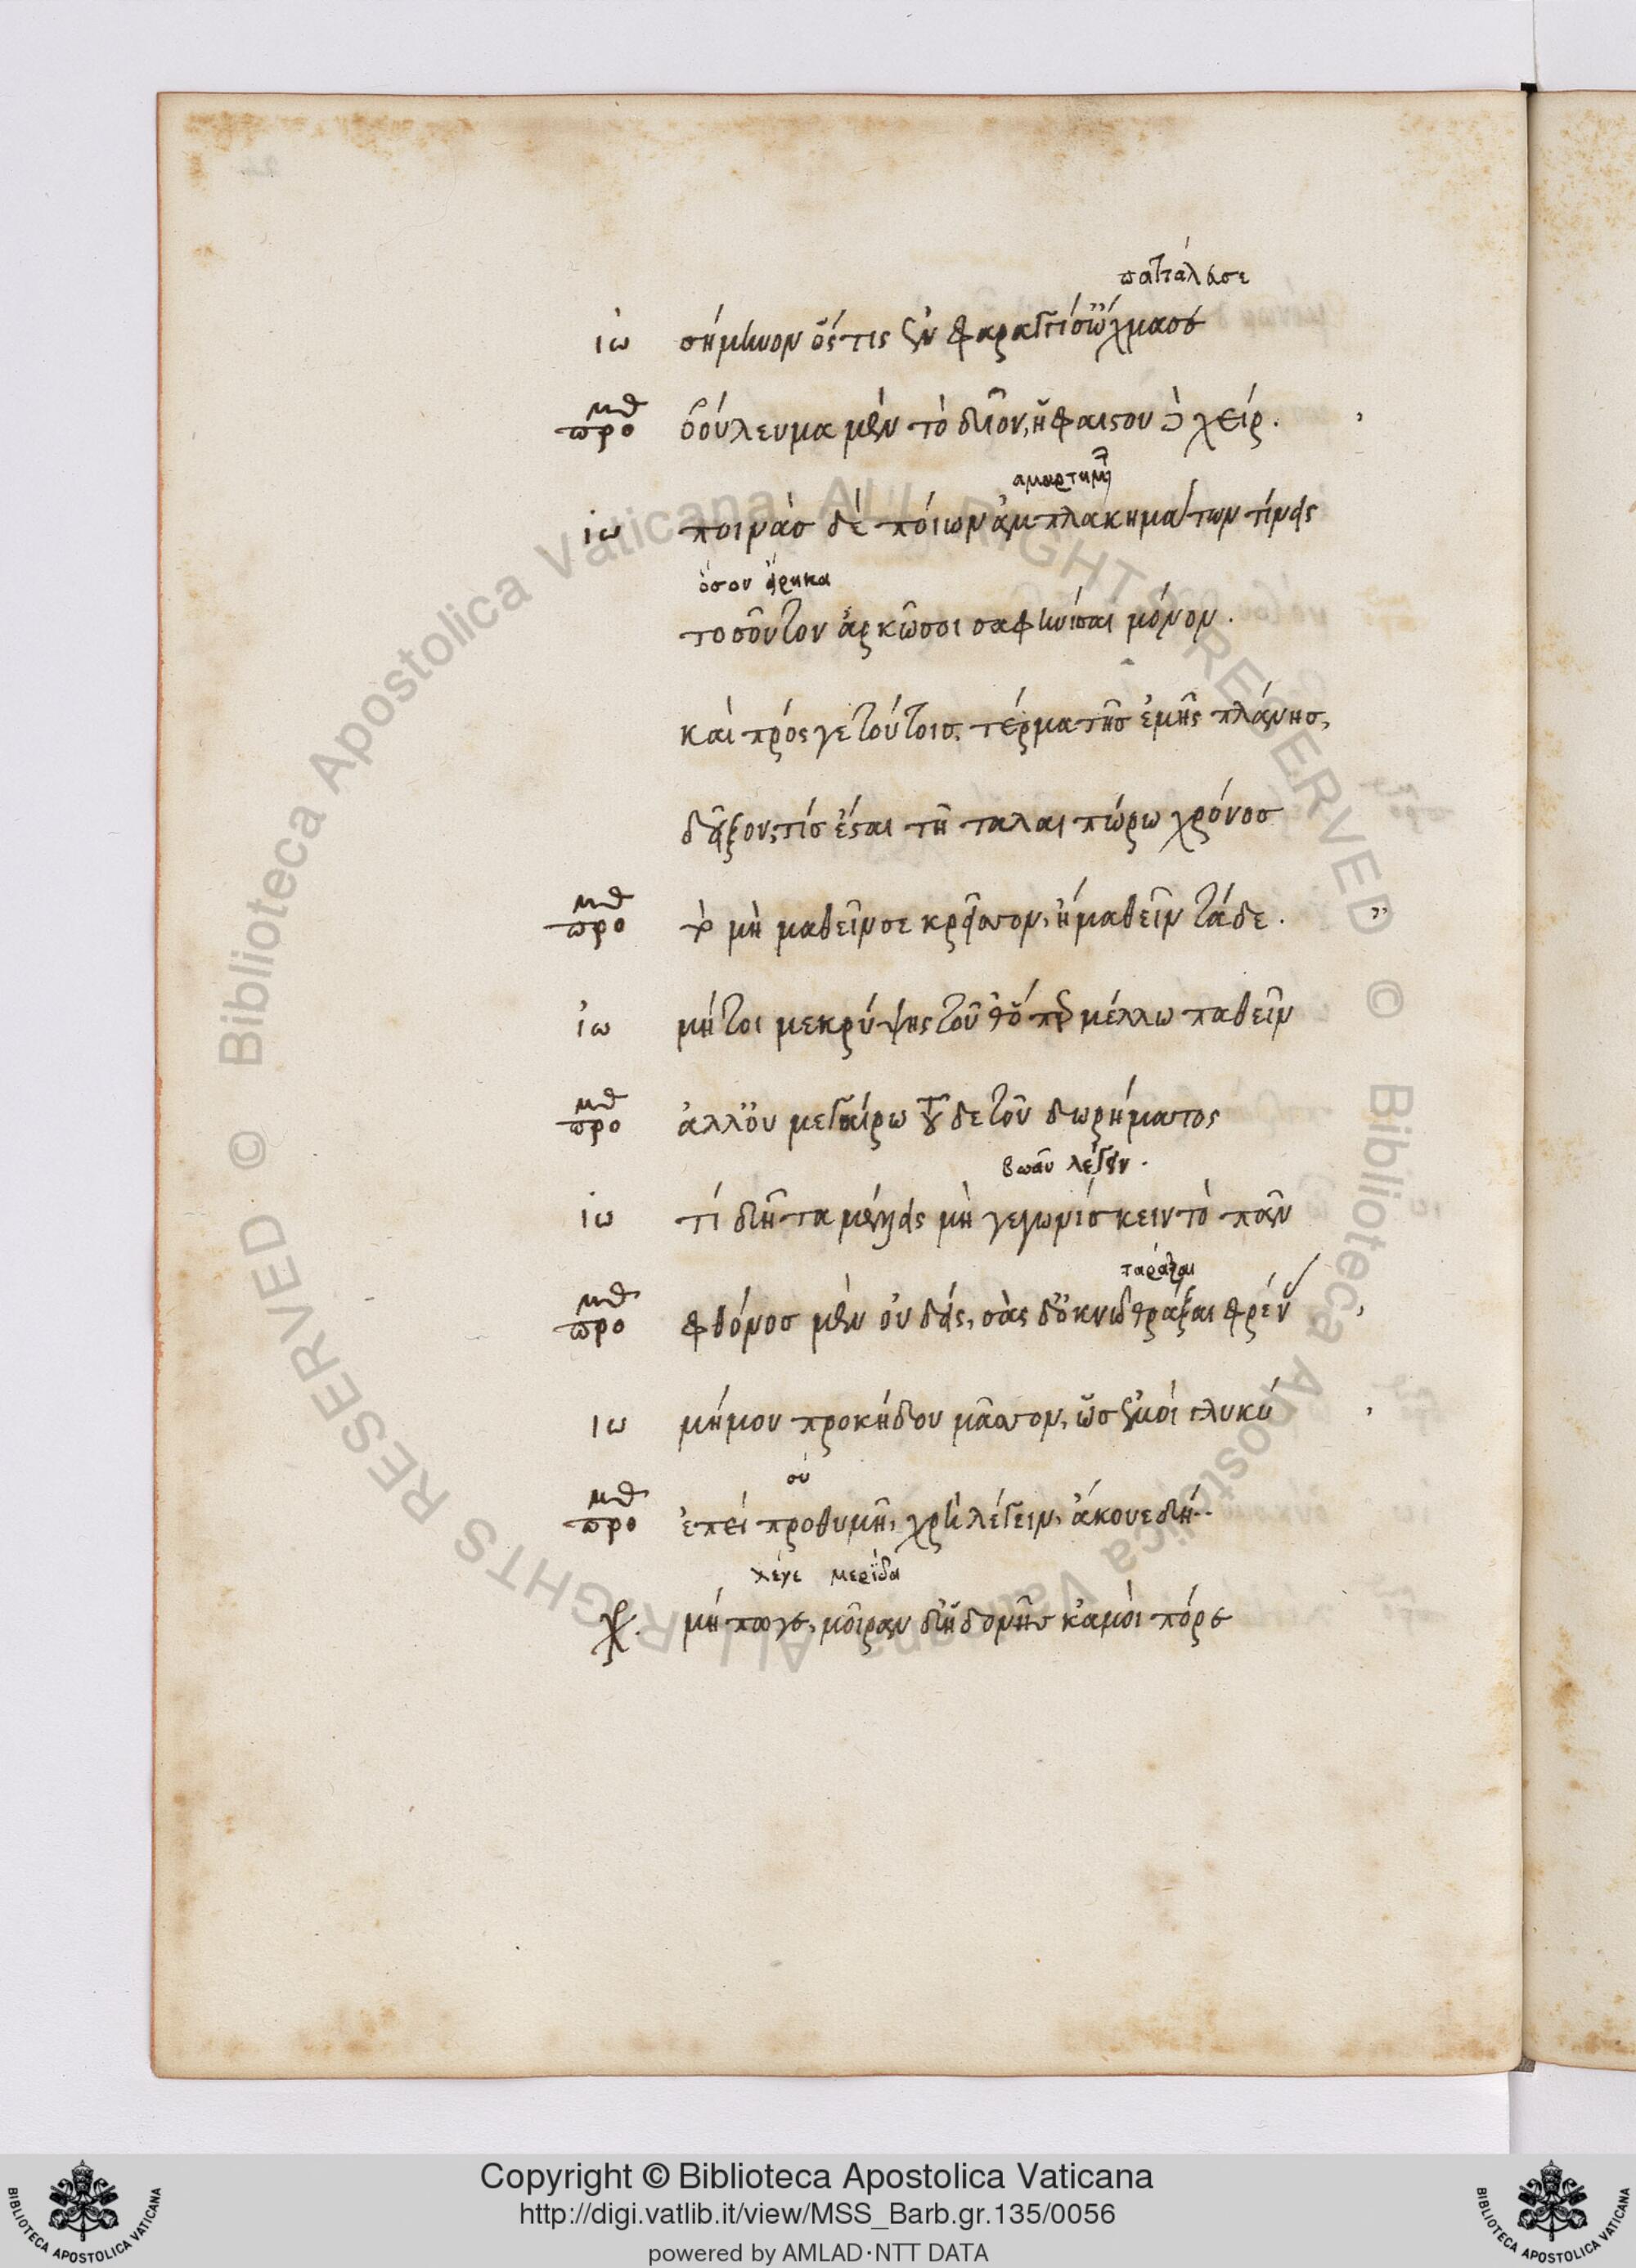 πατταλώσε
ἰω σήμηνον ὅστις ἐν φαραγγί σ' ὤχμασε
προμθ βούλευμα μὲν τὸ δῖον, ἡφαίστου δὲ χείρ.
ἁμαρτημάτων
ἰω ποινὰσ δὲ ποίων ἀμπλακημάτων τίνεις
ὅσον εἴρηκα
τοσοῦτον ἀρκῶ σοι σαφηνίσαι μόνον.
καὶ πρός γε τούτοισ, τέρμα τῆσ ἐμῆς πλάνησ,
δεῖξον, τίσ ἔσται τῇ ταλαιπώρω χρόνοσ
προμθ τὸ μὴ μαθεῖν σε κρεῖσσον, ἢ μαθεῖν τάδε.
ἰω μήτοι με κρύψης τοῦθ' ὅπερ μέλλω παθεῖν
προμθ ἀλλ' οὐ μεγαίρω τοῦδε τοῦ δωρήματος
βοᾶν λέγειν.
ἰω τί δῆτα μέλλεις μὴ γεγωνίσκειν τὸ πᾶν
ταράξαι
προμθ φθόνοσ μὲν οὐδείς, σὰς δ' ὀκνῶ θράξαι φρένας
ἰω μή μου προκήδου μᾶσσον, ὧσ ἐμοὶ γλυκύ
σὺ
προμθ ἐπεὶ προθυμῆ, χρὴ λέγειν, ἄκουε δή.
λέγε μερίδα
χρ. μήπω γε, μοῖραν δ' ἡδονῆς κἀμοὶ πόρε
Copyright © Biblioteca Apostolica Vaticana
http://digi.vatlib.it/view/MSS_Barb.gr.135/0056
powered by AMLAD·NTT DATA
BIBLIOTECA APOSTOLICA VATICANA
BIBLIOTECA APOSTOLICA VATICANA
© Biblioteca Apostolica Vaticana ALL RIGHTS RESERVED © Biblioteca Apostolica Vaticana ALL RIGHTS RESERVED